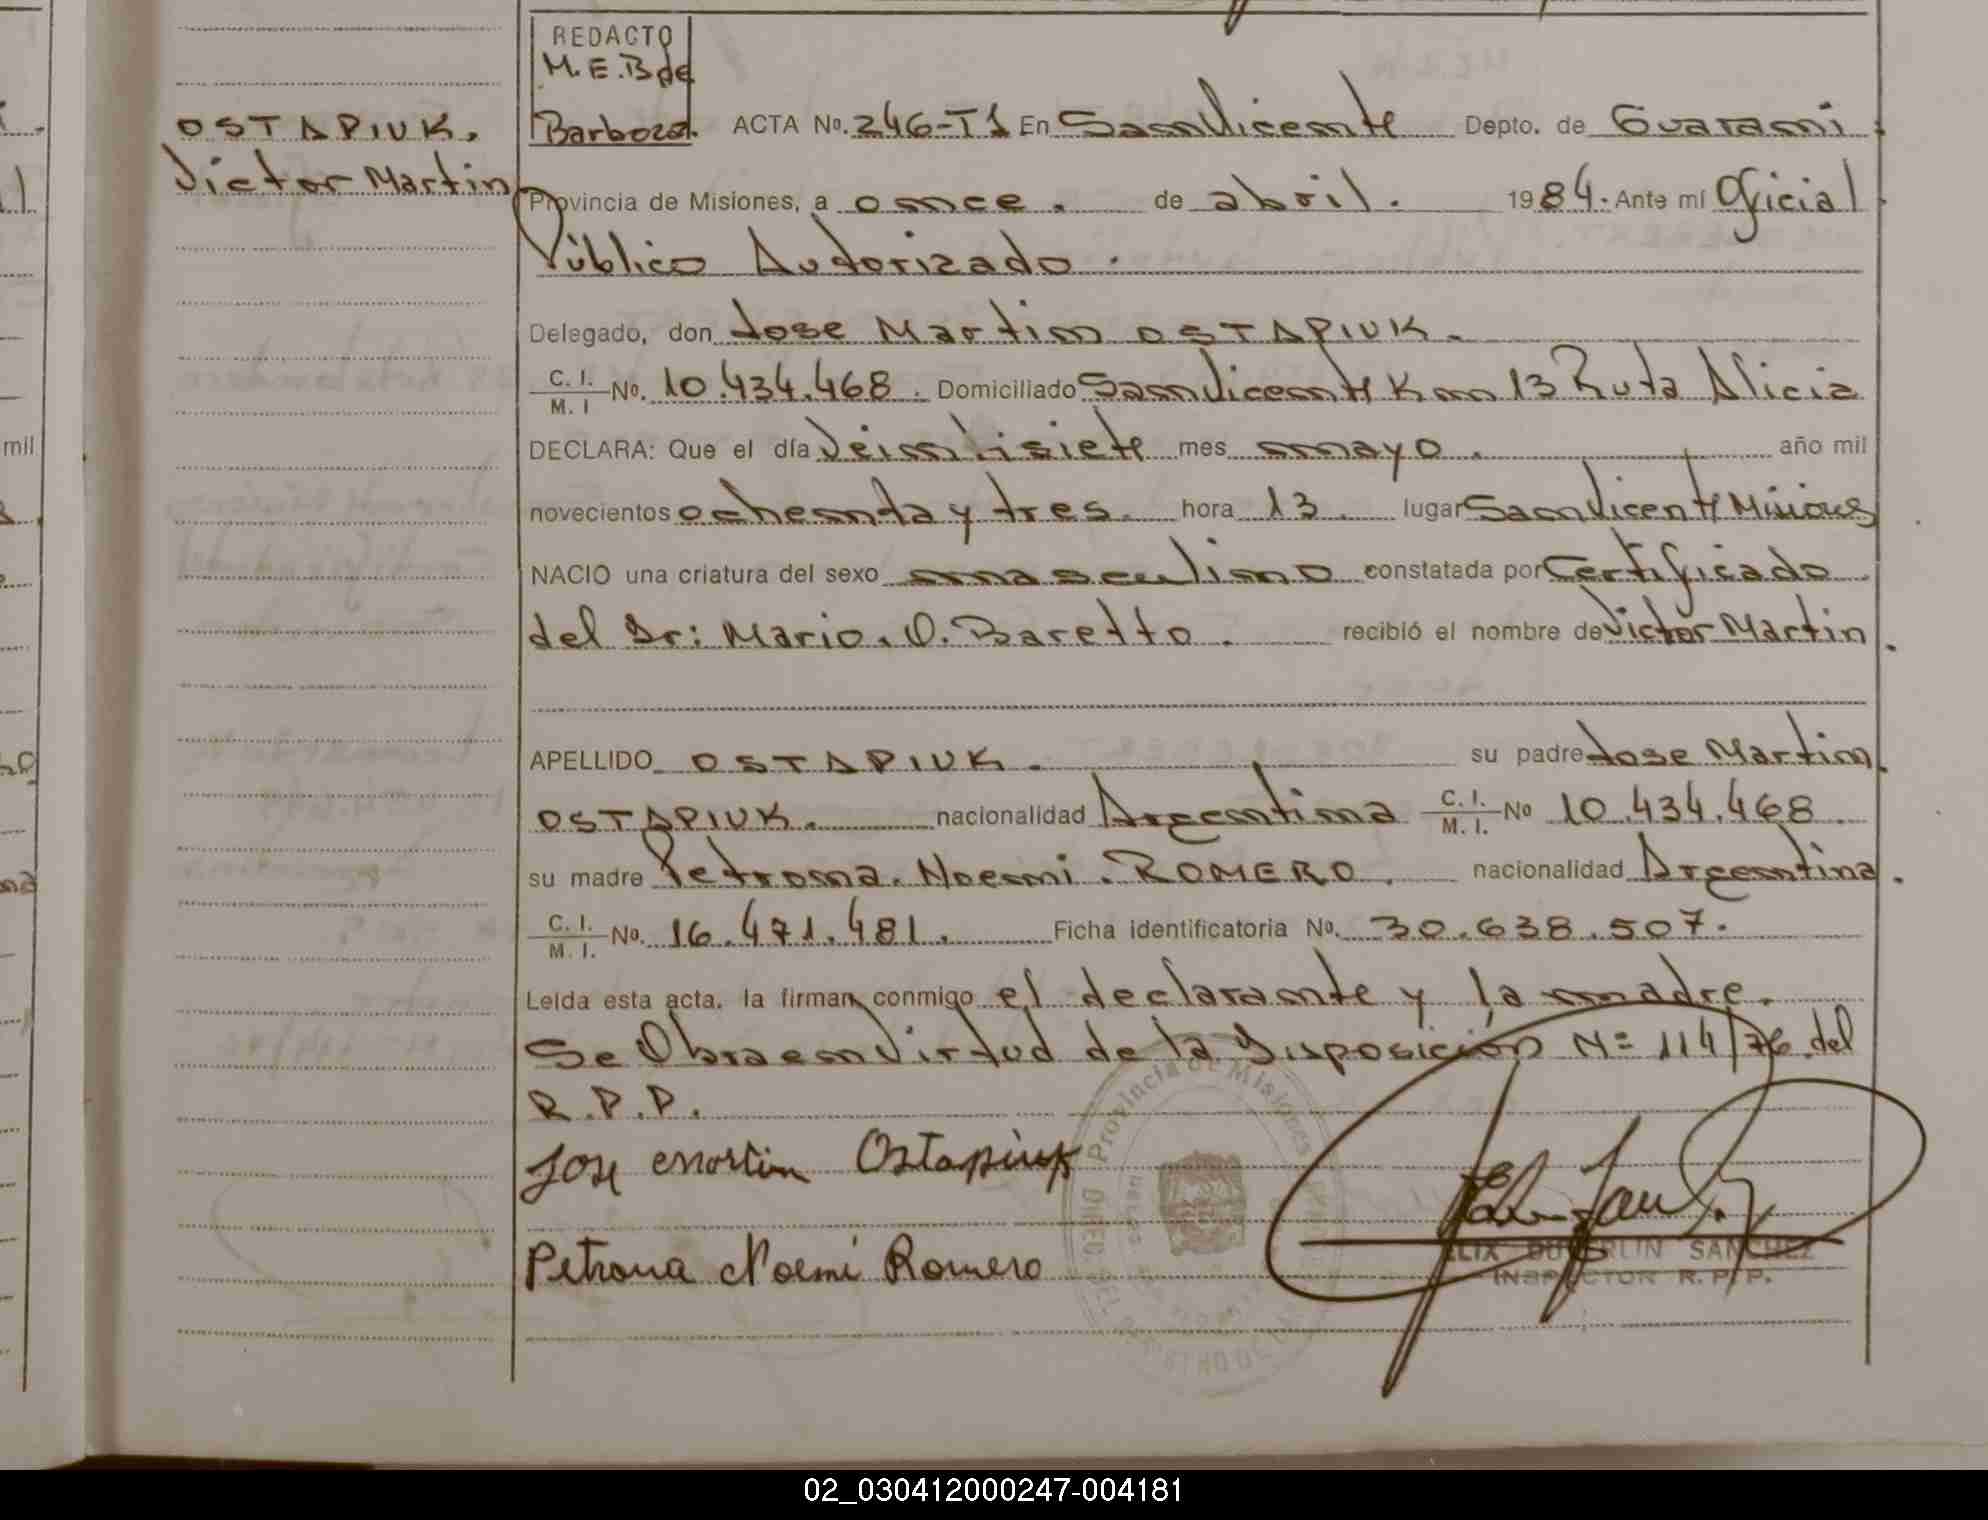 REDACTO
M.E.B de
Barboza.
OSTAPIUK.
Victor Martin
ACTA No. 246-T1 En San Vicente Depto. de Guarani
Provincia de Misiones, a once. de abril. 1984. Ante mí Oficial
Público Autorizado.
Delegado, don Jose Martin OSTAPIUK.
C. I. / M. I No. 10.434.468. Domiciliado San Vicente Km 13 Ruta Alicia
DECLARA: Que el día Veintisiete mes mayo. año mil
novecientos ochenta y tres. hora 13. lugar San Vicente Misiones
NACIO una criatura del sexo masculino constatada por Certificado
del Dr: Mario. O. Baretto. recibió el nombre de Victor Martin.
APELLIDO OSTAPIUK. su padre Jose Martin
OSTAPIUK. nacionalidad Argentina C. I. / M. I. No 10.434.468
su madre Petrona. Noemi. ROMERO. nacionalidad Argentina.
C. I. / M. I. No. 16.471.481. Ficha identificatoria No. 30.638.507.
Leída esta acta, la firman conmigo el declarante y la madre.
Se Obra en Virtud de la Disposición Nº 114/76 del
R.P.P.
Jose Martin Ostapiuk
Petrona Noemi Romero
Provincia de Misiones
FELIX DUBERLIN SANCHEZ
INSPECTOR R. P. P.
mil
02_030412000247-004181